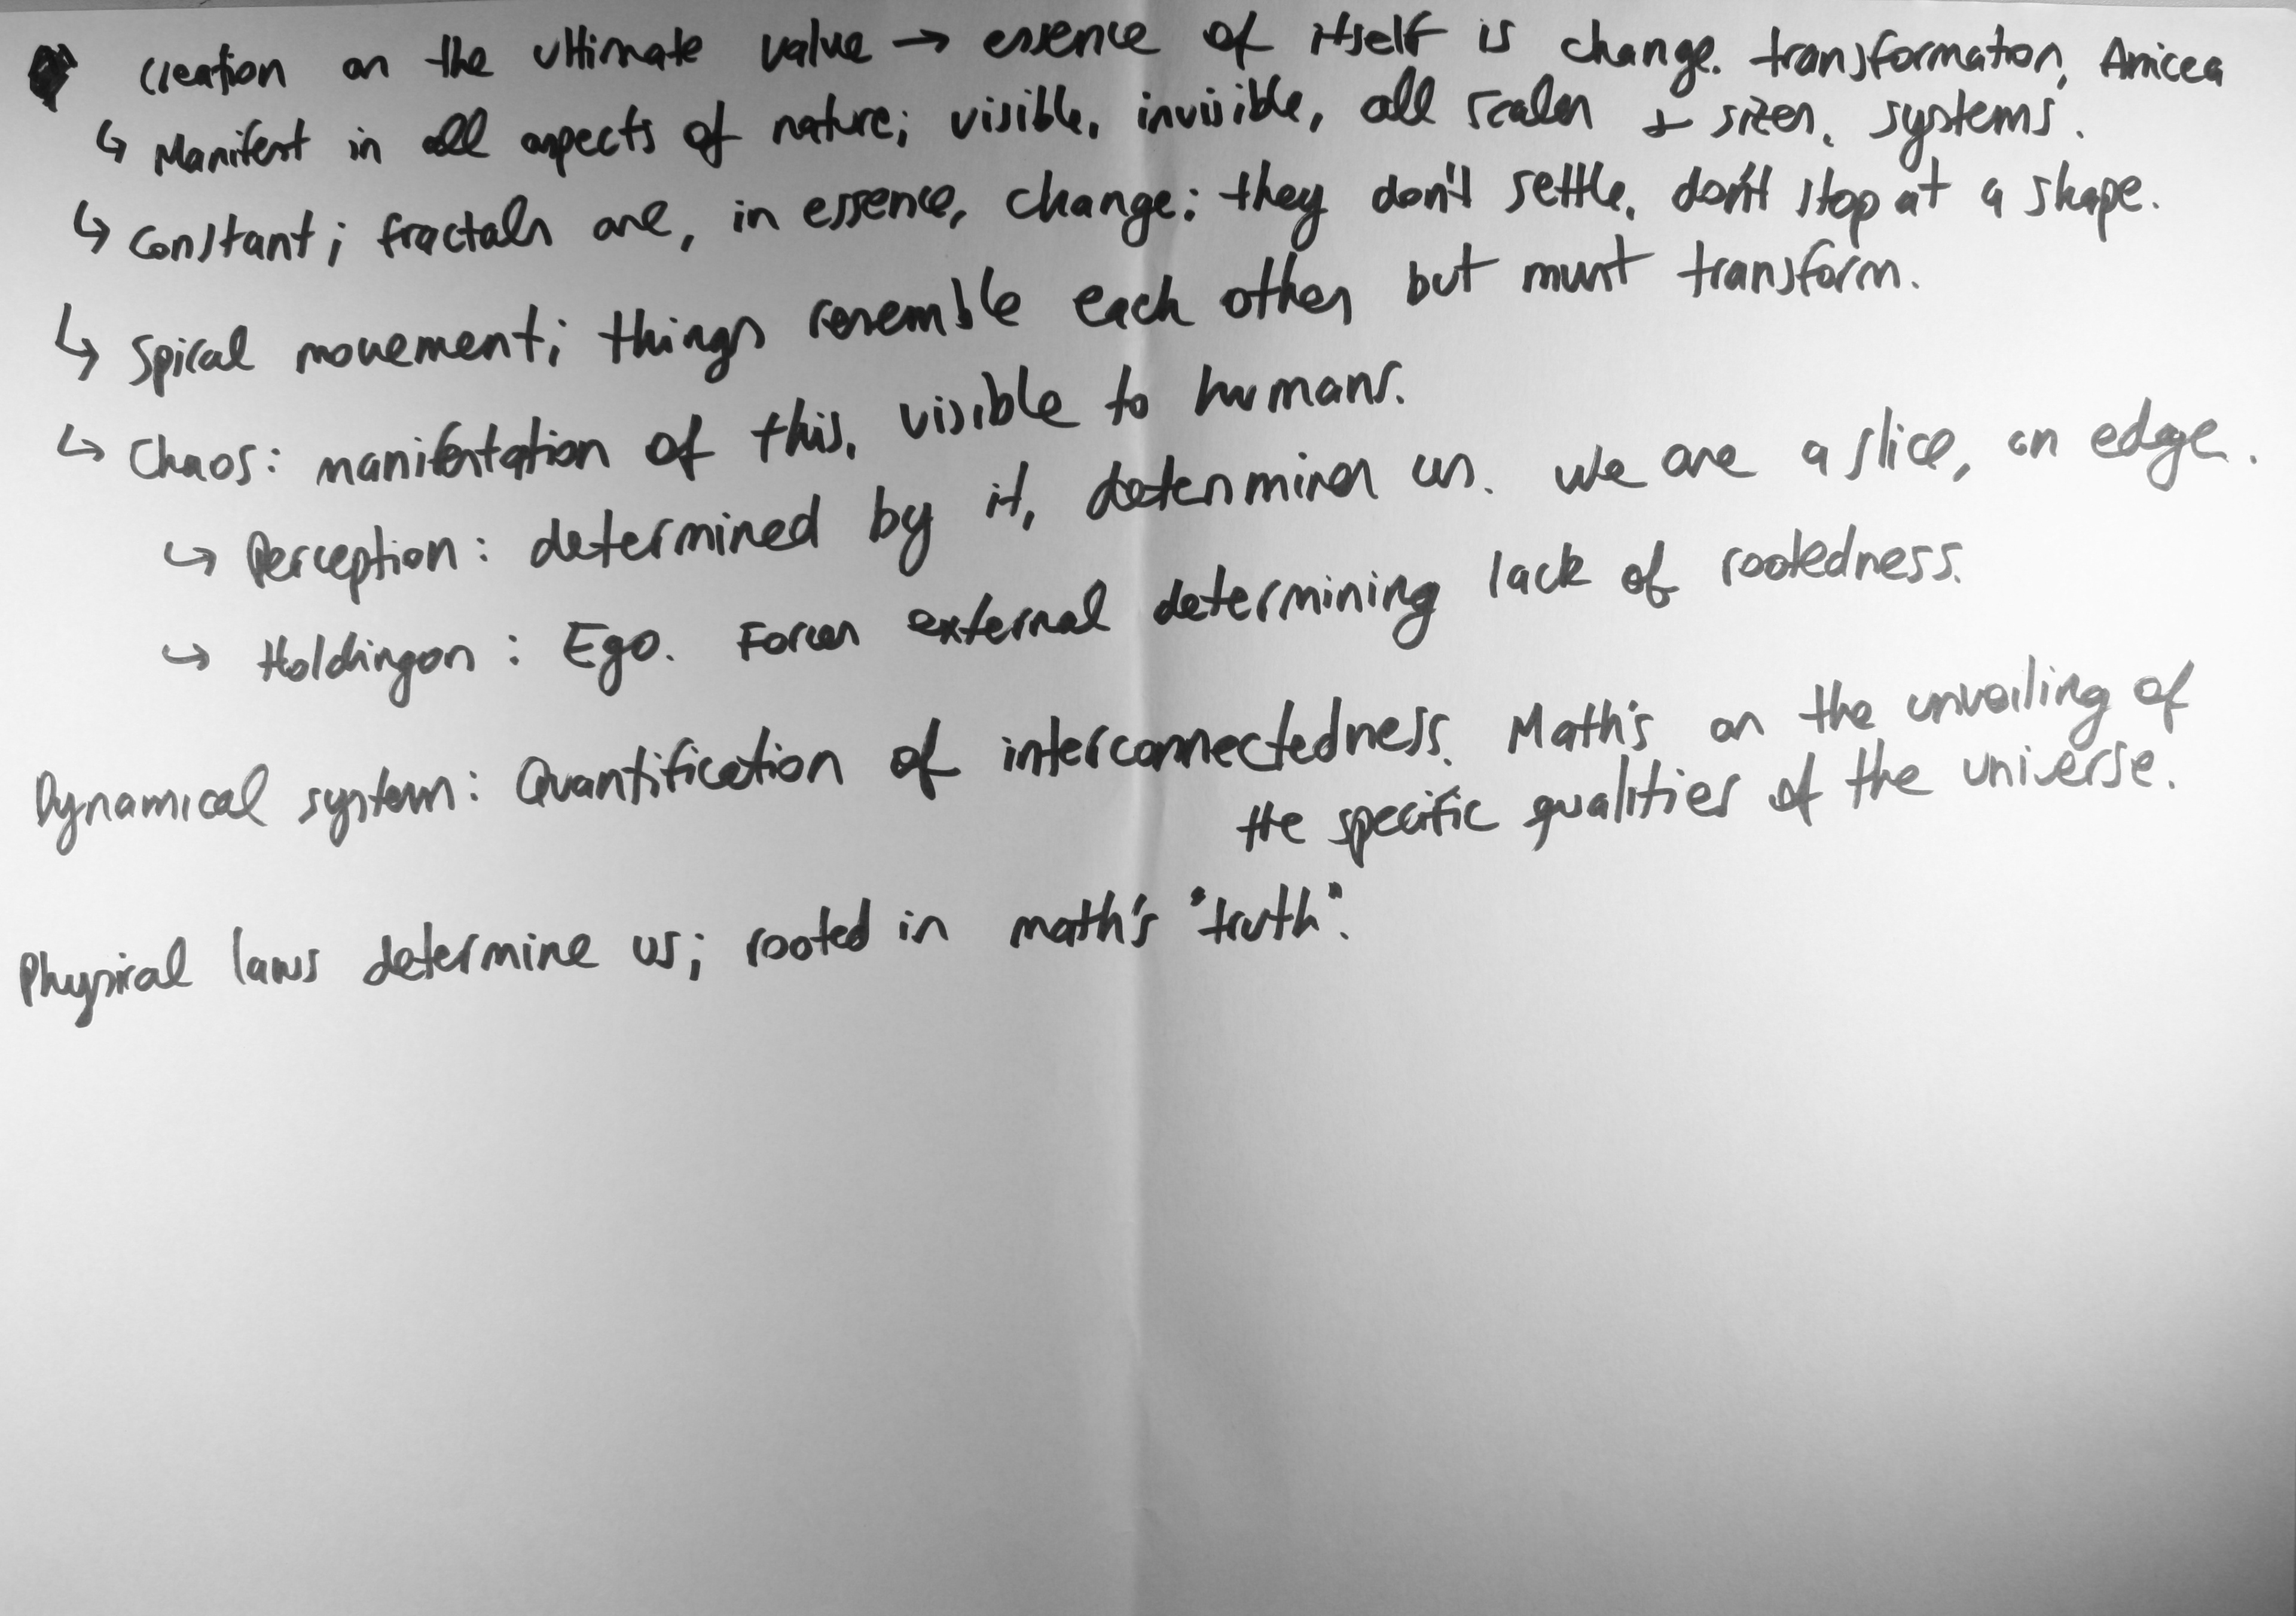 Creation as the ultimate value → essence of itself is change. transformation, Anicca
↳ Manifest in all aspects of nature; visible, invisible, all scales + sizes, systems.
↳ Constant; fractals are, in essence, change: they don't settle, don't stop at a shape.
↳ Spiral movement; things resemble each other but must transform.
↳ Chaos: manifestation of this, visible to humans.
↳ Perception: determined by it, determines us. We are a slice, an edge.
↳ Holdingon: Ego. Forces external determining lack of rootedness.
Dynamical system: Quantification of interconnectedness. Math's as the unvailing of
the specific qualities of the universe.
Physical laws determine us; rooted in math's "truth".